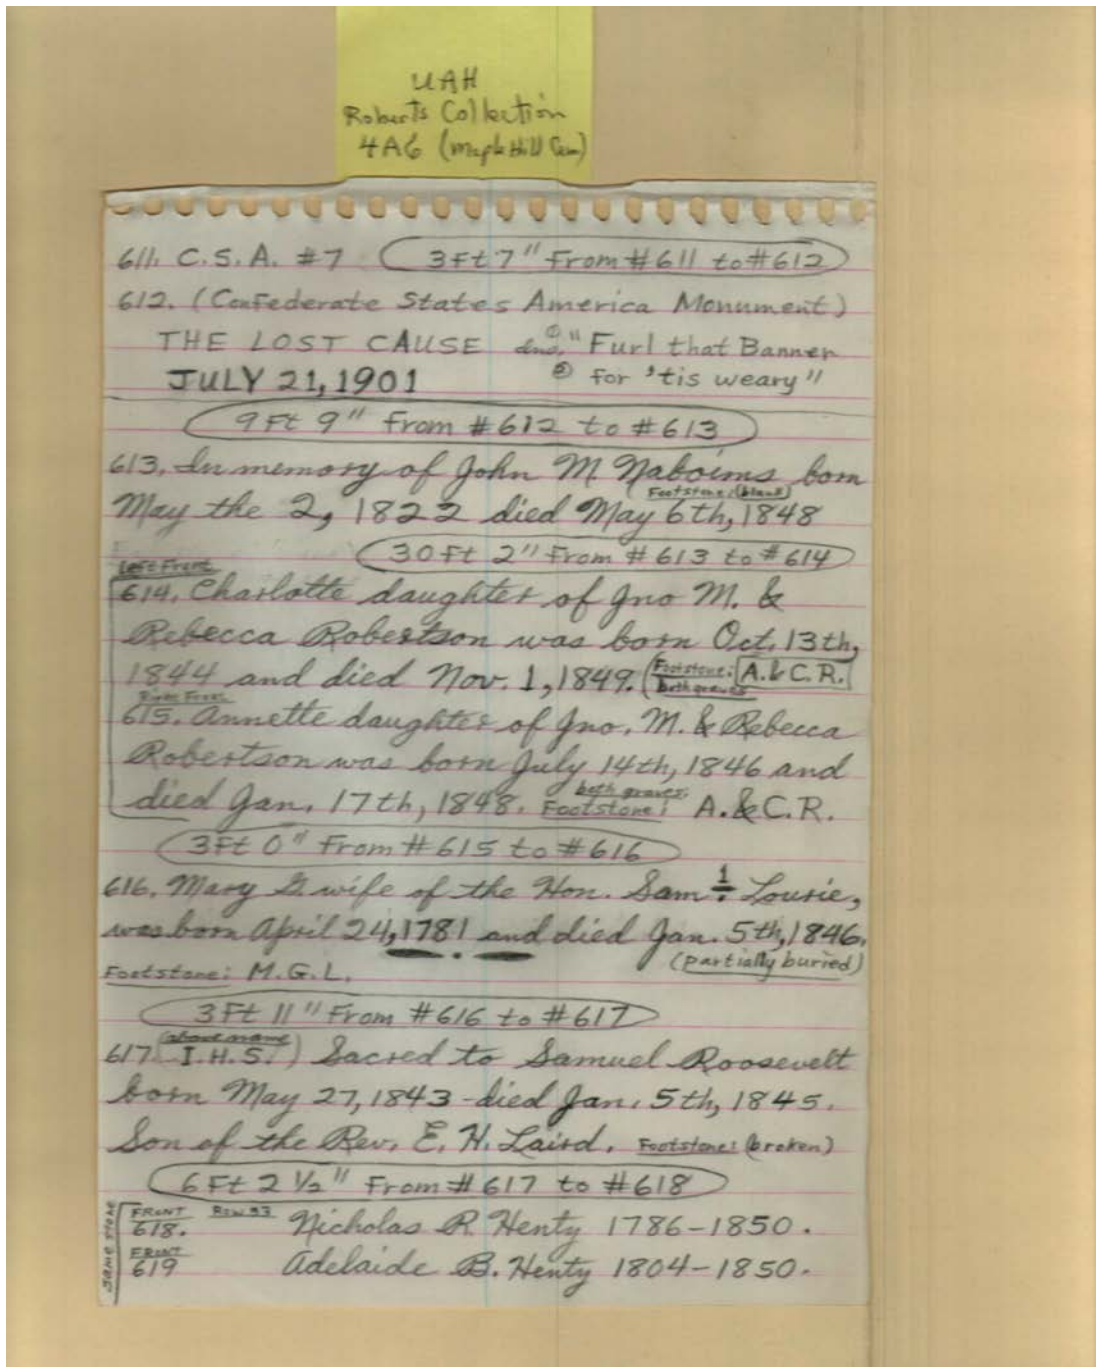 UAH
Roberts Collection
4A6 (Maple Hill Cem)
611. C.S.A. #7 3Ft 7" From #611 to #612
612. (Confederate States America Monument)
THE LOST CAUSE ① "Furl that Banner
JULY 21, 1901 ② for 'tis weary"
9Ft 9" From #612 to #613
613. In memory of John M. Naboims born
Footstone: (blank)
May the 2, 1822 died May 6th, 1848
30Ft 2" From #613 to #614
Left Front
614. Charlotte daughter of Jno M. &
Rebecca Robertson was born Oct. 13th,
1844 and died Nov. 1, 1849. (Footstone: A. & C. R.
both graves
Right Front
615. Annette daughter of Jno. M. & Rebecca
Robertson was born July 14th, 1846 and
both graves
died Jan. 17th, 1848. Footstone: A. & C. R.
3Ft 0" From #615 to #616
616. Mary G. wife of the Hon. Sam l Lourie,
was born April 24, 1781 and died Jan. 5th, 1846.
(partially buried)
Footstone: M.G.L.
3Ft 11" From #616 to #617
(above name
617. I.H.S.) Sacred to Samuel Roosevelt
born May 27, 1843 - died Jan. 5th, 1845.
Son of the Rev. E. H. Laird. Footstone: (broken)
6Ft 2 ½" From #617 to #618
same stone
FRONT Row 93
618. Nicholas R. Henty 1786-1850.
FRONT
619 Adelaide B. Henty 1804-1850.